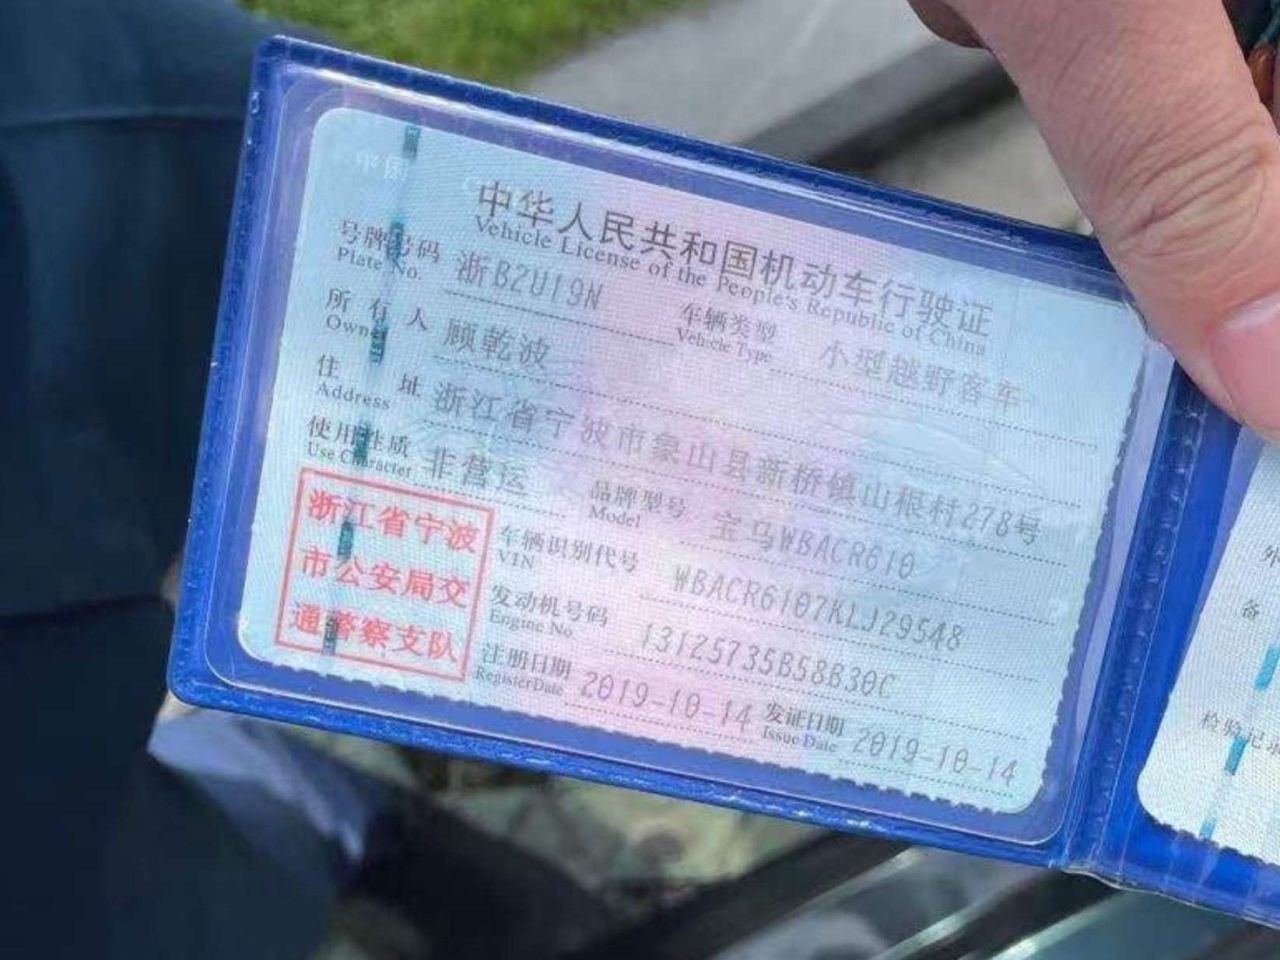 中国
中华人民共和国机动车行驶证
Vehicle License of the People's Republic of China
号牌号码 浙B2U19N 车辆类型 小型越野客车
Plate No. Vehicle Type
所有人 顾乾波
Owner
住址 浙江省宁波市象山县新桥镇山根村278号
Address
使用性质 非营运 品牌型号 宝马WBACR610
Use Character Model
浙江省宁波
市公安局交
通警察支队
车辆识别代号 WBACR6107KLJ29548
VIN
发动机号码 13125735B58B30C
Engine No.
注册日期 2019-10-14 发证日期 2019-10-14
Register Date Issue Date
备
检验记